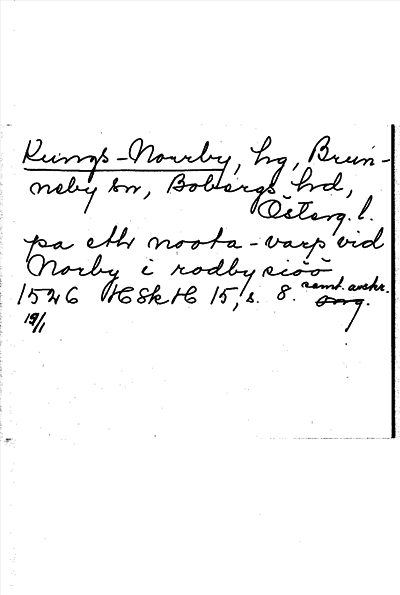 Kungs-Norrby, hg, Brun-
neby sn, Bobergs hd,
Österg. l.
pa ett noota-varp vid
Norby i rodby siöö
1546 HSkH 15, s. 8. samt. avskr.
19/1